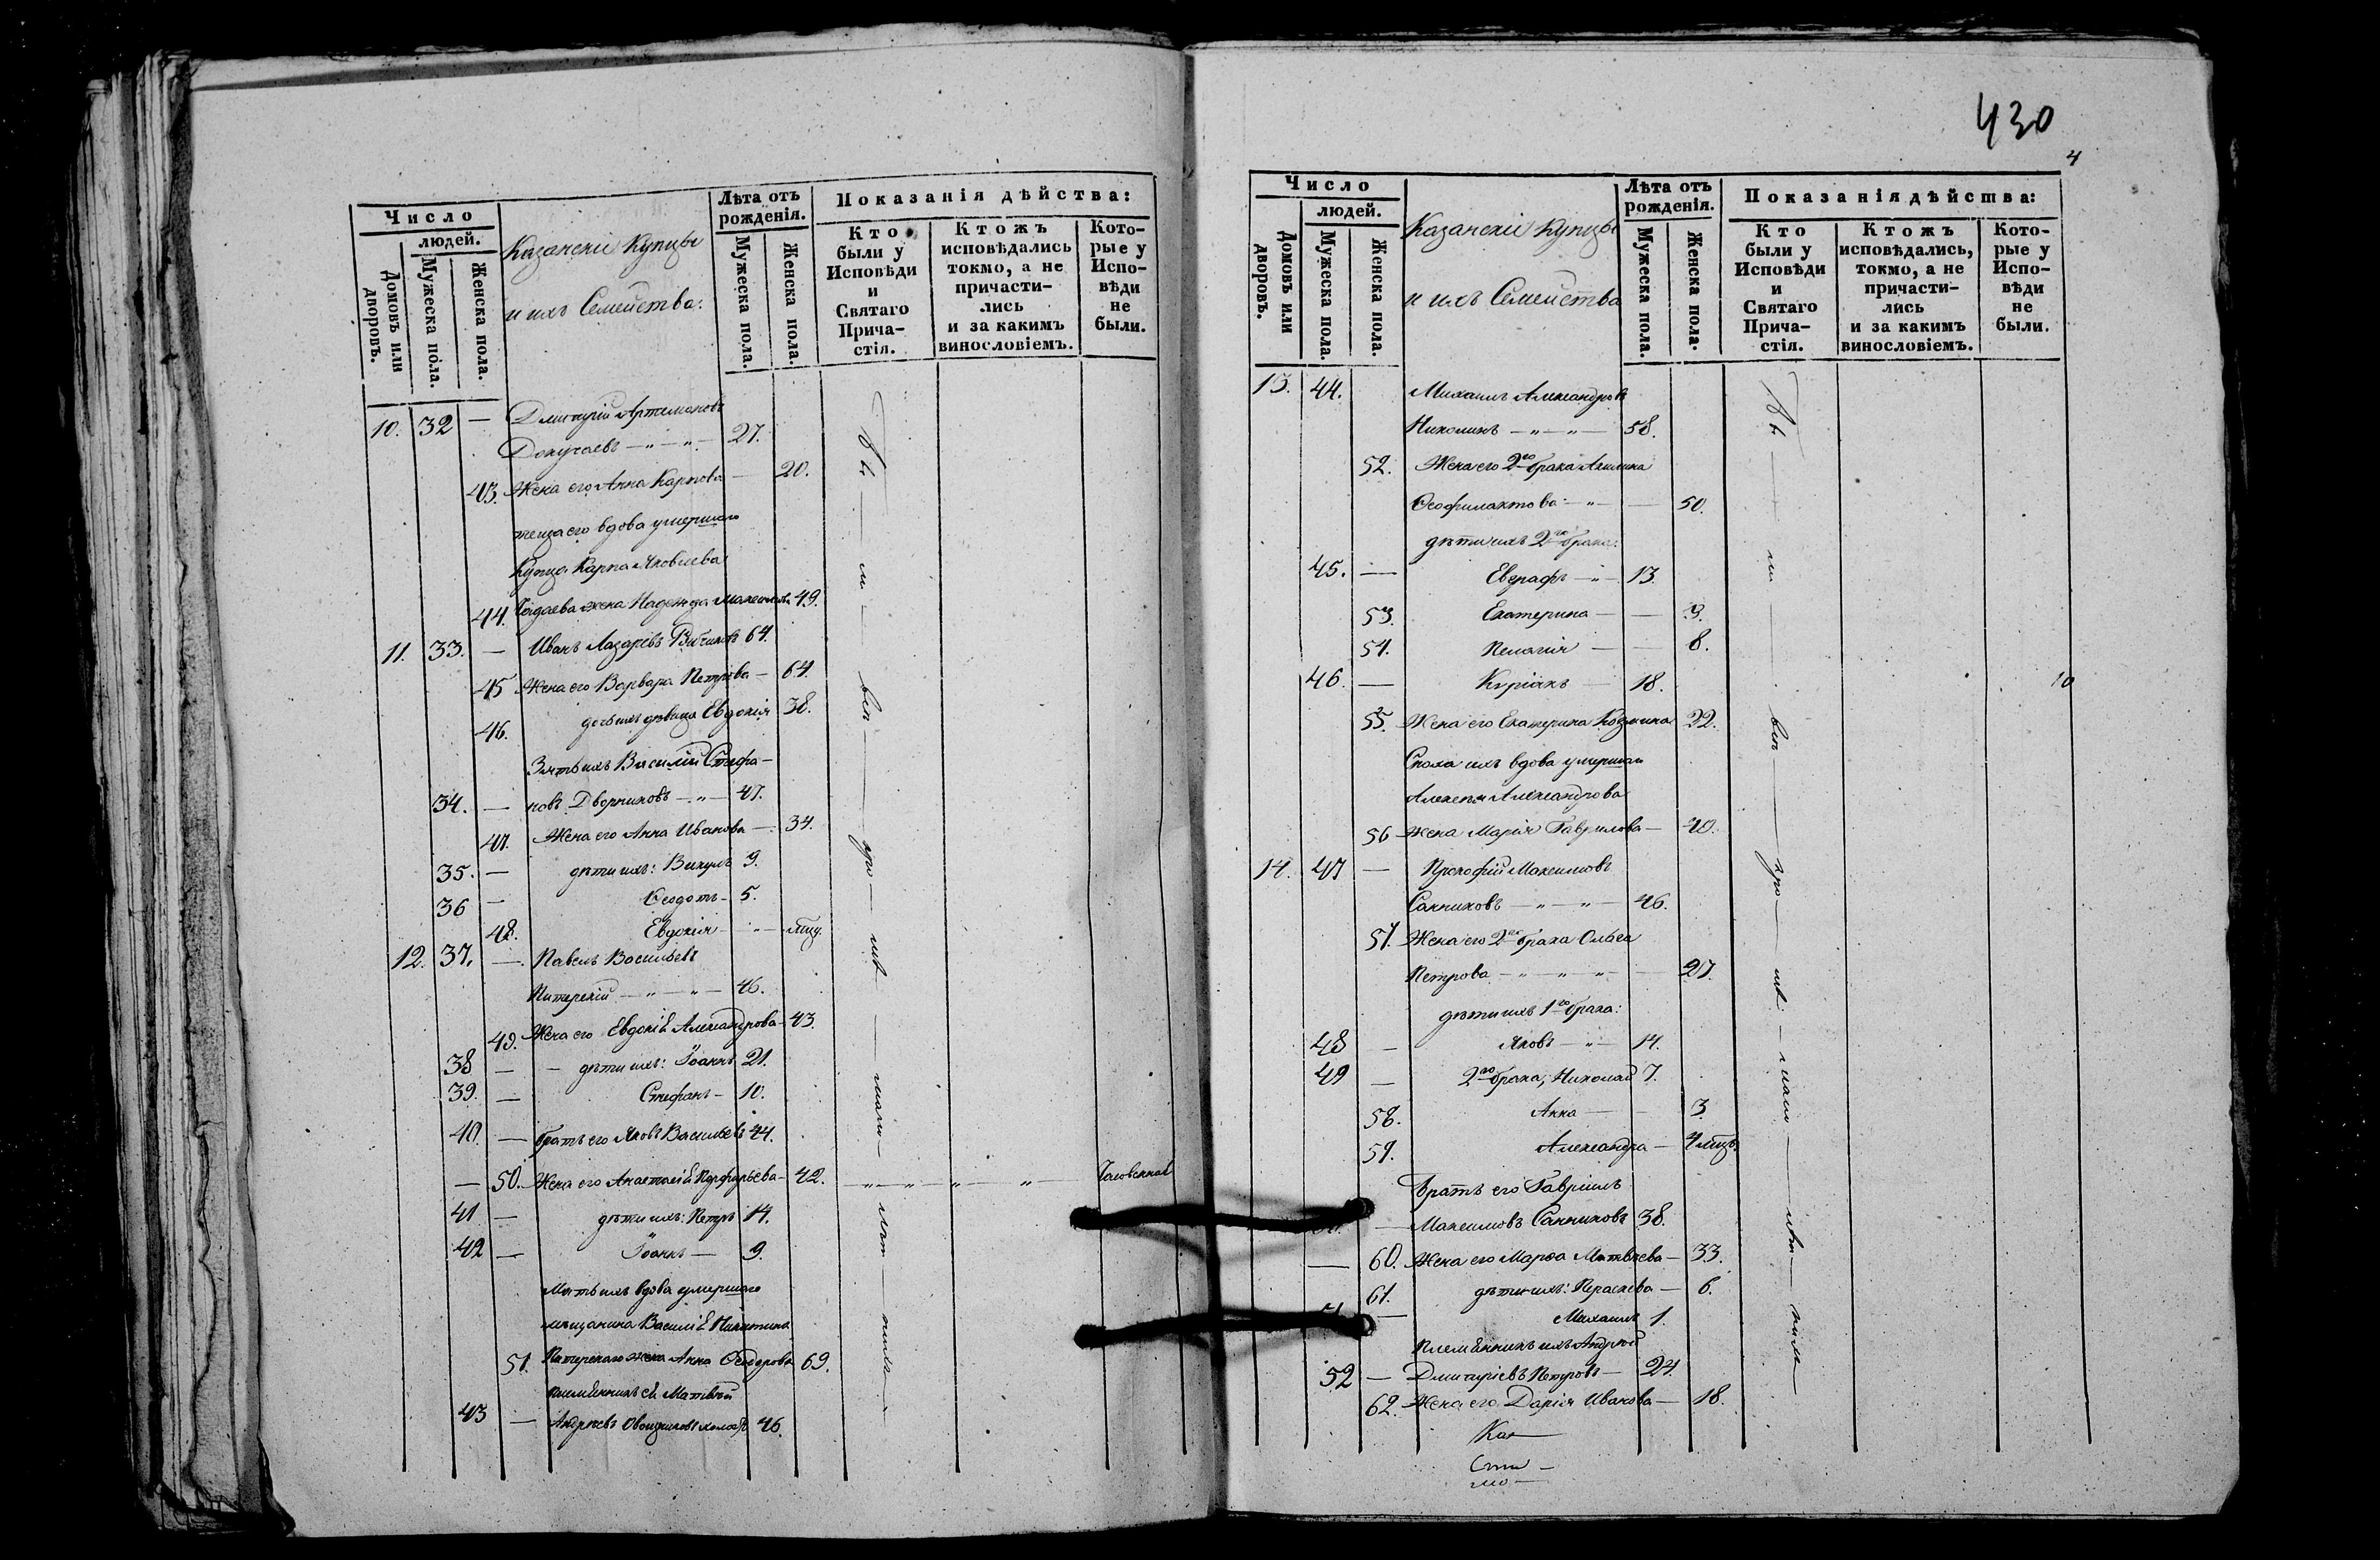 430
4
Число
людей.
Домовъ или дворовъ.
Мужеска пола.
Женска пола.
Казанскіе Купцы
и ихъ Семейства:
Лѣта отъ рожденія.
Мужеска пола.
Женска пола.
Показанія дѣйства:
Кто были у Исповѣди и Святаго Причастія.
Ктожъ исповѣдались токмо, а не причастились и за какимъ винословіемъ.
Которые у Исповѣди не были.
10. 32 — Дмитрій Артемоновъ
Докучаевъ — „ — „ — 27.
43. Жена его Анна Карпова — 20.
теща его вдова умершаго
Купца Карпа Яковлева
44. жена Надежда 49.
11. 33. — Иванъ Лазаревъ 64.
45 Жена его Варвара Петрова — 64.
46. дочь ихъ девица Евдокія 38.
Зять ихъ Василій Стефа-
34. — новъ Дворниковъ — „ — 47.
47. Жена его Анна Иванова — 34.
35. — дѣти ихъ: Викулъ 9.
36 — Ѳеодотъ — 5.
48. Евдокія — „ —
12. 37. — Павелъ Васильевъ
Питерскій — „ — „ — 46.
49. Жена его Евдокія Александрова — 43.
38 — дѣти ихъ: Іоаннъ 21.
39. — Стефанъ — 10.
40. — братъ его Яковъ Васильевъ 44.
— 50. Жена его Анастасія Порфирьева — 42. — „ — „ — „ — „
41 — дѣти ихъ: Петръ 14.
42 — Іоаннъ — 9.
Мать ихъ вдова умершаго
мѣщанина Василія Никитина
51. Питерскаго жена Анна Ѳеодорова 69.
племянникъ ея Матвѣй
43 — Андреевъ 46.
Число
людей.
Домовъ или дворовъ.
Мужеска пола.
Женска пола.
Казанскіе Купцы
и ихъ Семейства
Лѣта отъ рожденія.
Мужеска пола.
Женска пола.
Показанія дѣйства:
Кто были у Исповѣди и Святаго Причастія.
Ктожъ исповѣдались, токмо, а не причастились и за какимъ винословіемъ.
Которые у Исповѣди не были.
13. 44. Михаилъ Александровъ
Николинъ — „ — „ — 58.
52. Жена его 2го брака Акилина
Ѳеофилактова — „ — 50.
дѣти ихъ 2го брака:
45. — Евграфъ — „ — 13.
53. Екатерина — — 9.
54. Пелагія — — 8.
46. — Киріакъ — 18.
10
55. Жена его Екатерина Козмина 22.
Сноха ихъ вдова умершаго
Алексѣя Александрова
56 Жена Марія Гаврилова — 40.
14. 47 — Прокофій Максимовъ
Санниковъ — „ — „ — 46.
57. Жена его 2го брака Ольга
Петрова — „ — „ — „ — 27.
дѣти ихъ 1го брака:
48 — Яковъ — „ — 14.
49 — 2го брака, Николай 7.
58. Анна — — 3.
59. Александра — 4 мѣсц.
Братъ его Гавріилъ
— Максимовъ Санниковъ 38.
— 60. Жена его Марѳа Матвѣева — 33.
61. дѣти ихъ: Параскева — 6.
— Михаилъ 1.
Племянникъ ихъ Андрей
52 — Дмитріевъ Петровъ — 24.
62. Жена его Дарія Иванова — 18.